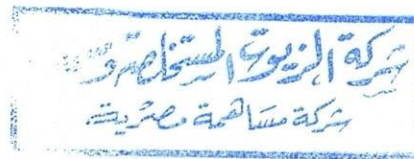 شركة الزيوت المستخلصة و
شركة مساهمة مصرية